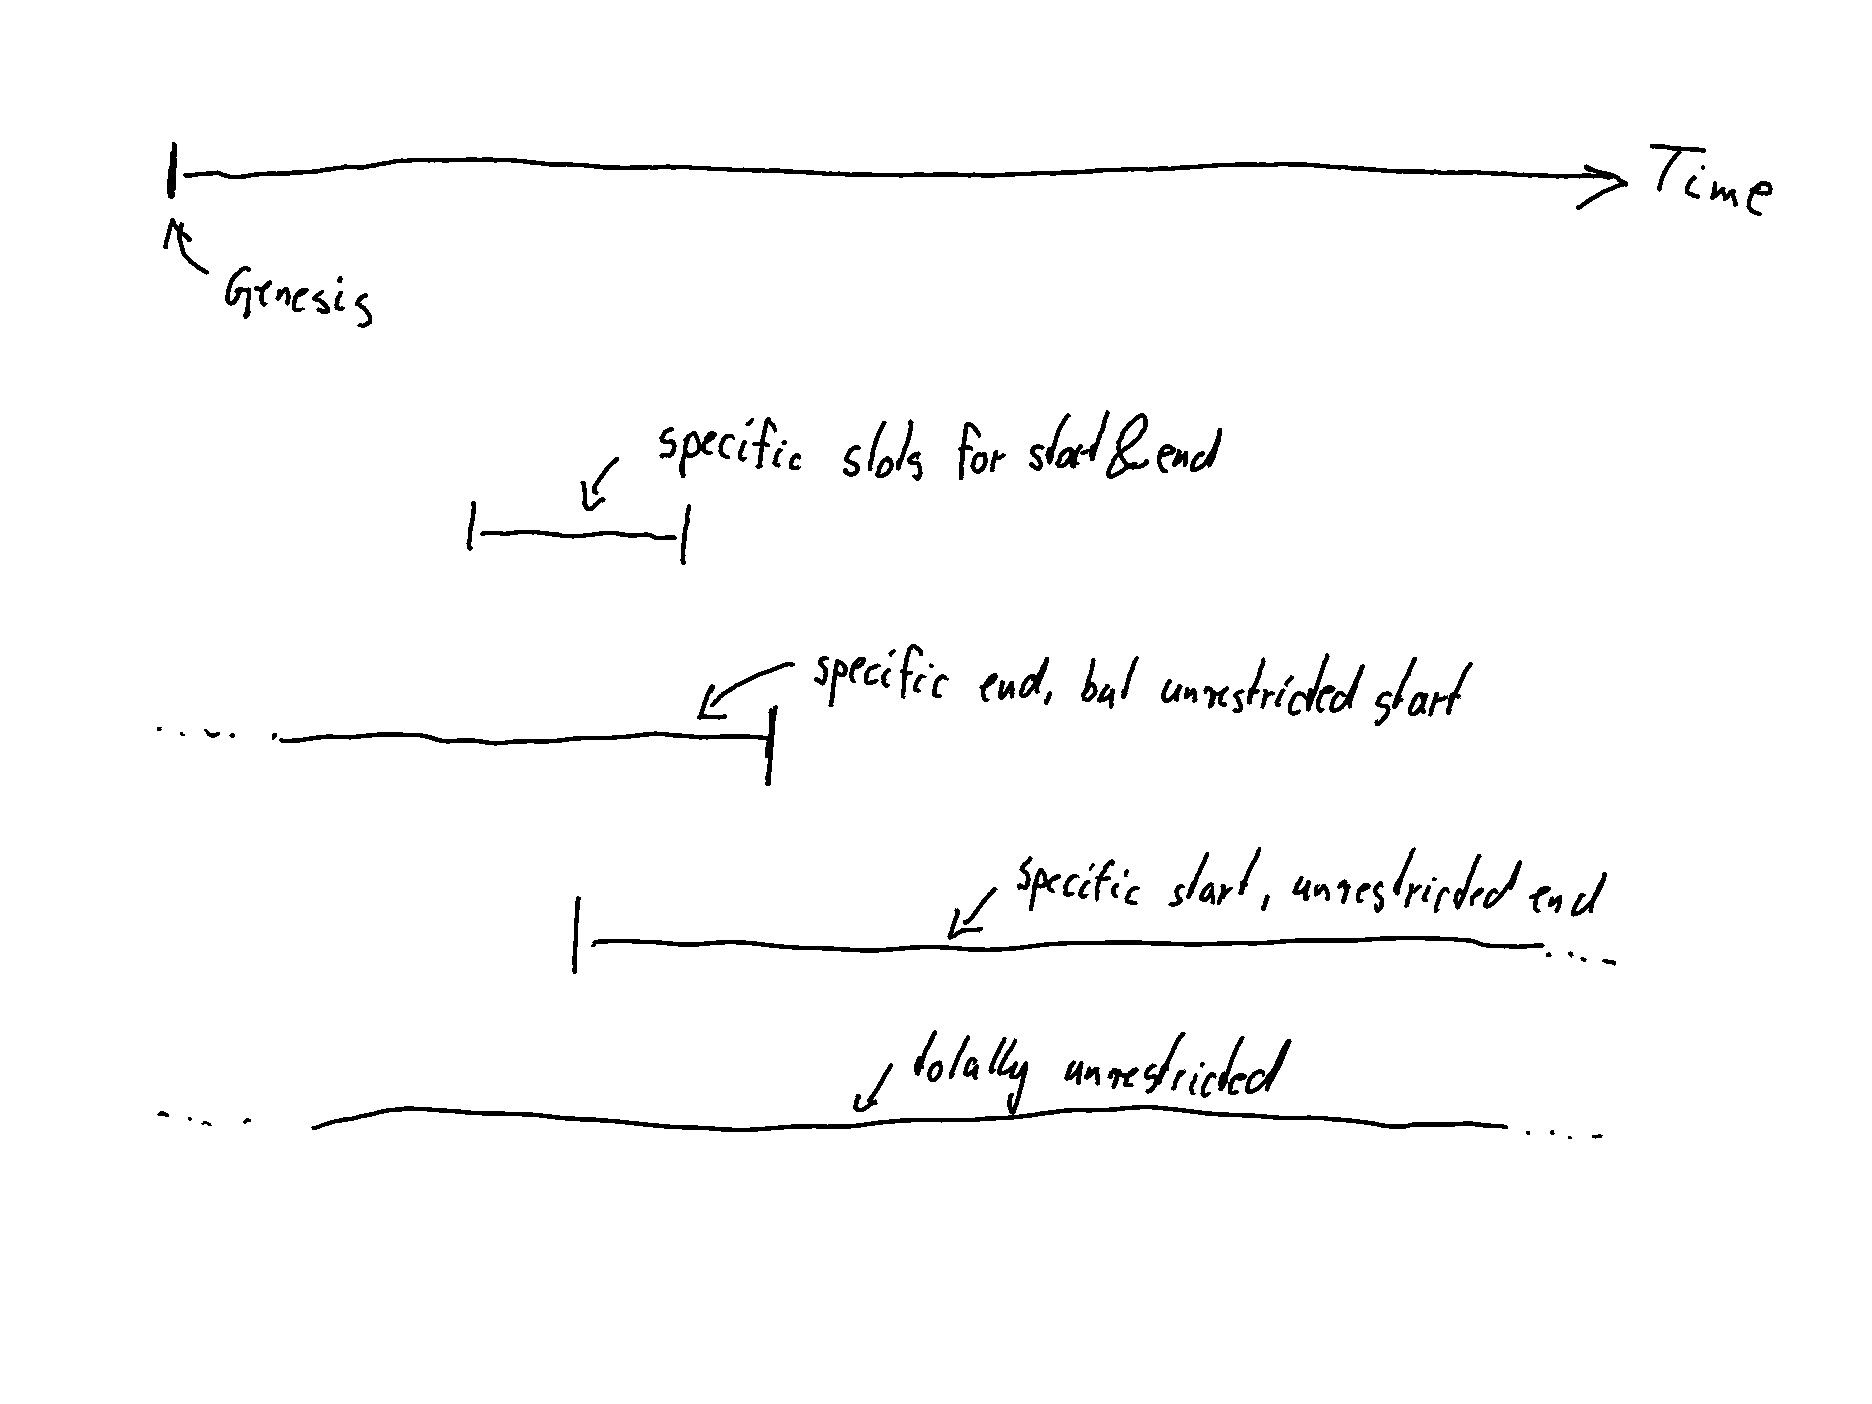 Time
Genesis
specific slots for start & end
specific end, but unrestricted start
specific start, unrestricted end
totally unrestricted